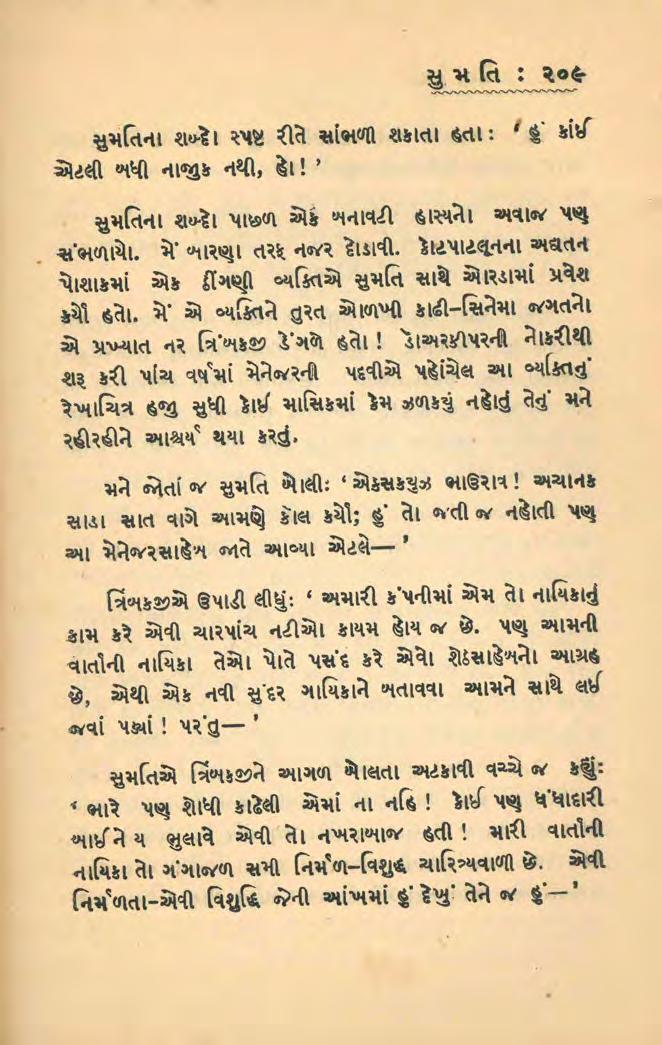 સુ મ તિ : ૨૦૯
સુમતિના શબ્દો સ્પષ્ટ રીતે સાંભળી શકાતા હતા: ‘ હું કાંઈ
એટલી બધી નાજુક નથી, હો! ’
સુમતિના શબ્દો પાછળ એક બનાવટી હાસ્યનો અવાજ પણ
સંભળાયો. મેં બારણા તરફ નજર દોડાવી. કોટપાટલૂનના અદ્યતન
પોશાકમાં એક ઠીંગણી વ્યક્તિએ સુમતિ સાથે ઓરડામાં પ્રવેશ
કર્યો હતો. મેં એ વ્યક્તિને તુરત ઓળખી કાઢી–સિનેમા જગતનો
એ પ્રખ્યાત નર ત્રિંબકજી ડેંગળે હતો ! ડોઅરકીપરની નોકરીથી
શરૂ કરી પાંચ વર્ષમાં મેનેજરની પદવીએ પહોંચેલ આ વ્યક્તિનું
રેખાચિત્ર હજી સુધી કોઈ માસિકમાં કેમ ઝળકયું નહોતું તેનું મને
રહીરહીને આશ્ચર્ય થયા કરતું.
મને જોતાં જ સુમતિ બોલી: ‘ એક્સકયુઝ ભાઉરાવ ! અચાનક
સાડા સાત વાગે આમણે કૉલ કર્યો; હું તો જતી જ નહોતી પણ
આ મેનેજરસાહેબ જાતે આવ્યા એટલે— ’
ત્રિંબકજીએ ઉપાડી લીધું: ‘ અમારી કંપનીમાં એમ તો નાયિકાનું
કામ કરે એવી ચારપાંચ નટીઓ કાયમ હોય જ છે. પણ આમની
વાર્તાની નાયિકા તેઓ પોતે પસંદ કરે એવો શેઠસાહેબનો આગ્રહ
છે, એથી એક નવી સુંદર ગાયિકાને બતાવવા આમને સાથે લઈ
જવાં પડ્યાં ! પરંતુ— ’
સુમતિએ ત્રિંબકજીને આગળ બોલતા અટકાવી વચ્ચે જ કહ્યું:
‘ ભારે પણ શોધી કાઢેલી એમાં ના નહિ ! કોઈ પણ ધંધાદારી
બાઈને ય ભુલાવે એવી તો નખરાબાજ હતી ! મારી વાર્તાની
નાયિકા તો ગંગાજળ સમી નિર્મળ–વિશુદ્ધ ચારિત્ર્યવાળી છે. એવી
નિર્મળતા–એવી વિશુદ્ધિ જેની આંખમાં હું દેખું તેને જ હું—’